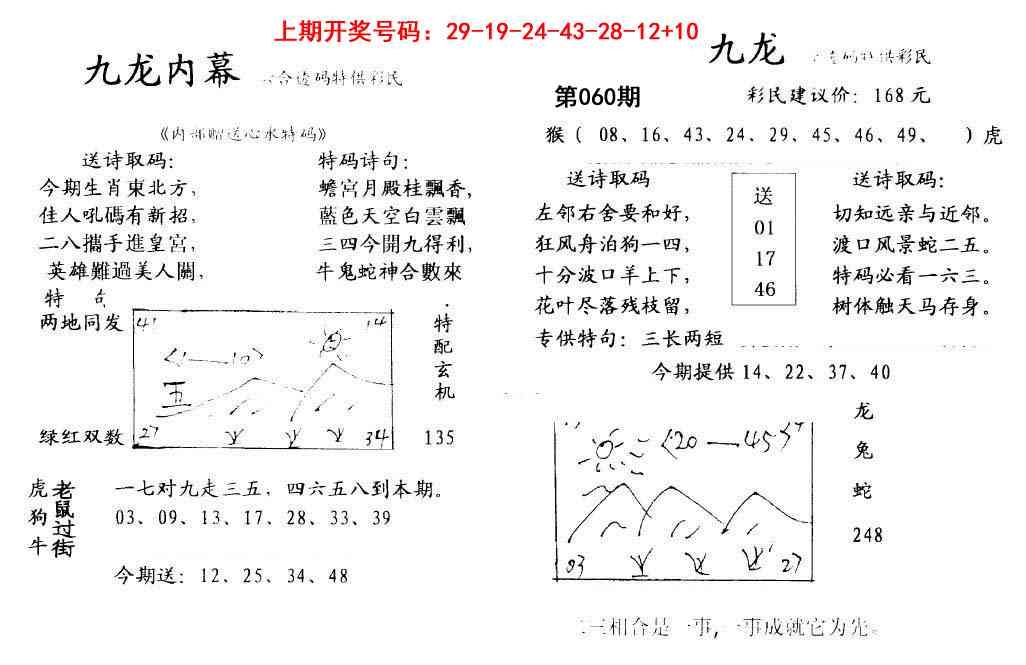 上期开奖号码：29-19-24-43-28-12+10
九龙内幕
合透码特供彩民
《内部赠送心水特码》
送诗取码：
今期生肖東北方，
佳人吼碼有新招，
二八攜手進皇宮，
英雄難過美人關，
特码诗句：
蟾宮月殿桂飄香，
藍色天空白雲飄
三四今開九得利，
牛鬼蛇神合數來
特 句
两地同发
绿红双数
41
14
<1—10>
五
27
34
特配玄机
135
虎狗牛
老鼠过街
一七对九走三五，四六五八到本期。
03、09、13、17、28、33、39
今期送：12、25、34、48
九龙
特供彩民
第060期
彩民建议价：168元
猴（ 08、16、43、24、29、45、46、49、 ）虎
送诗取码
左邻右舍要和好，
狂风舟泊狗一四，
十分波口羊上下，
花叶尽落残枝留，
送
01
17
46
送诗取码：
切知远亲与近邻。
渡口风景蛇二五。
特码必看一六三。
树体触天马存身。
专供特句：三长两短
今期提供14、22、37、40
<20—45>
03
27
龙
兔
蛇
248
二三相合是一事，一事成就它为先。